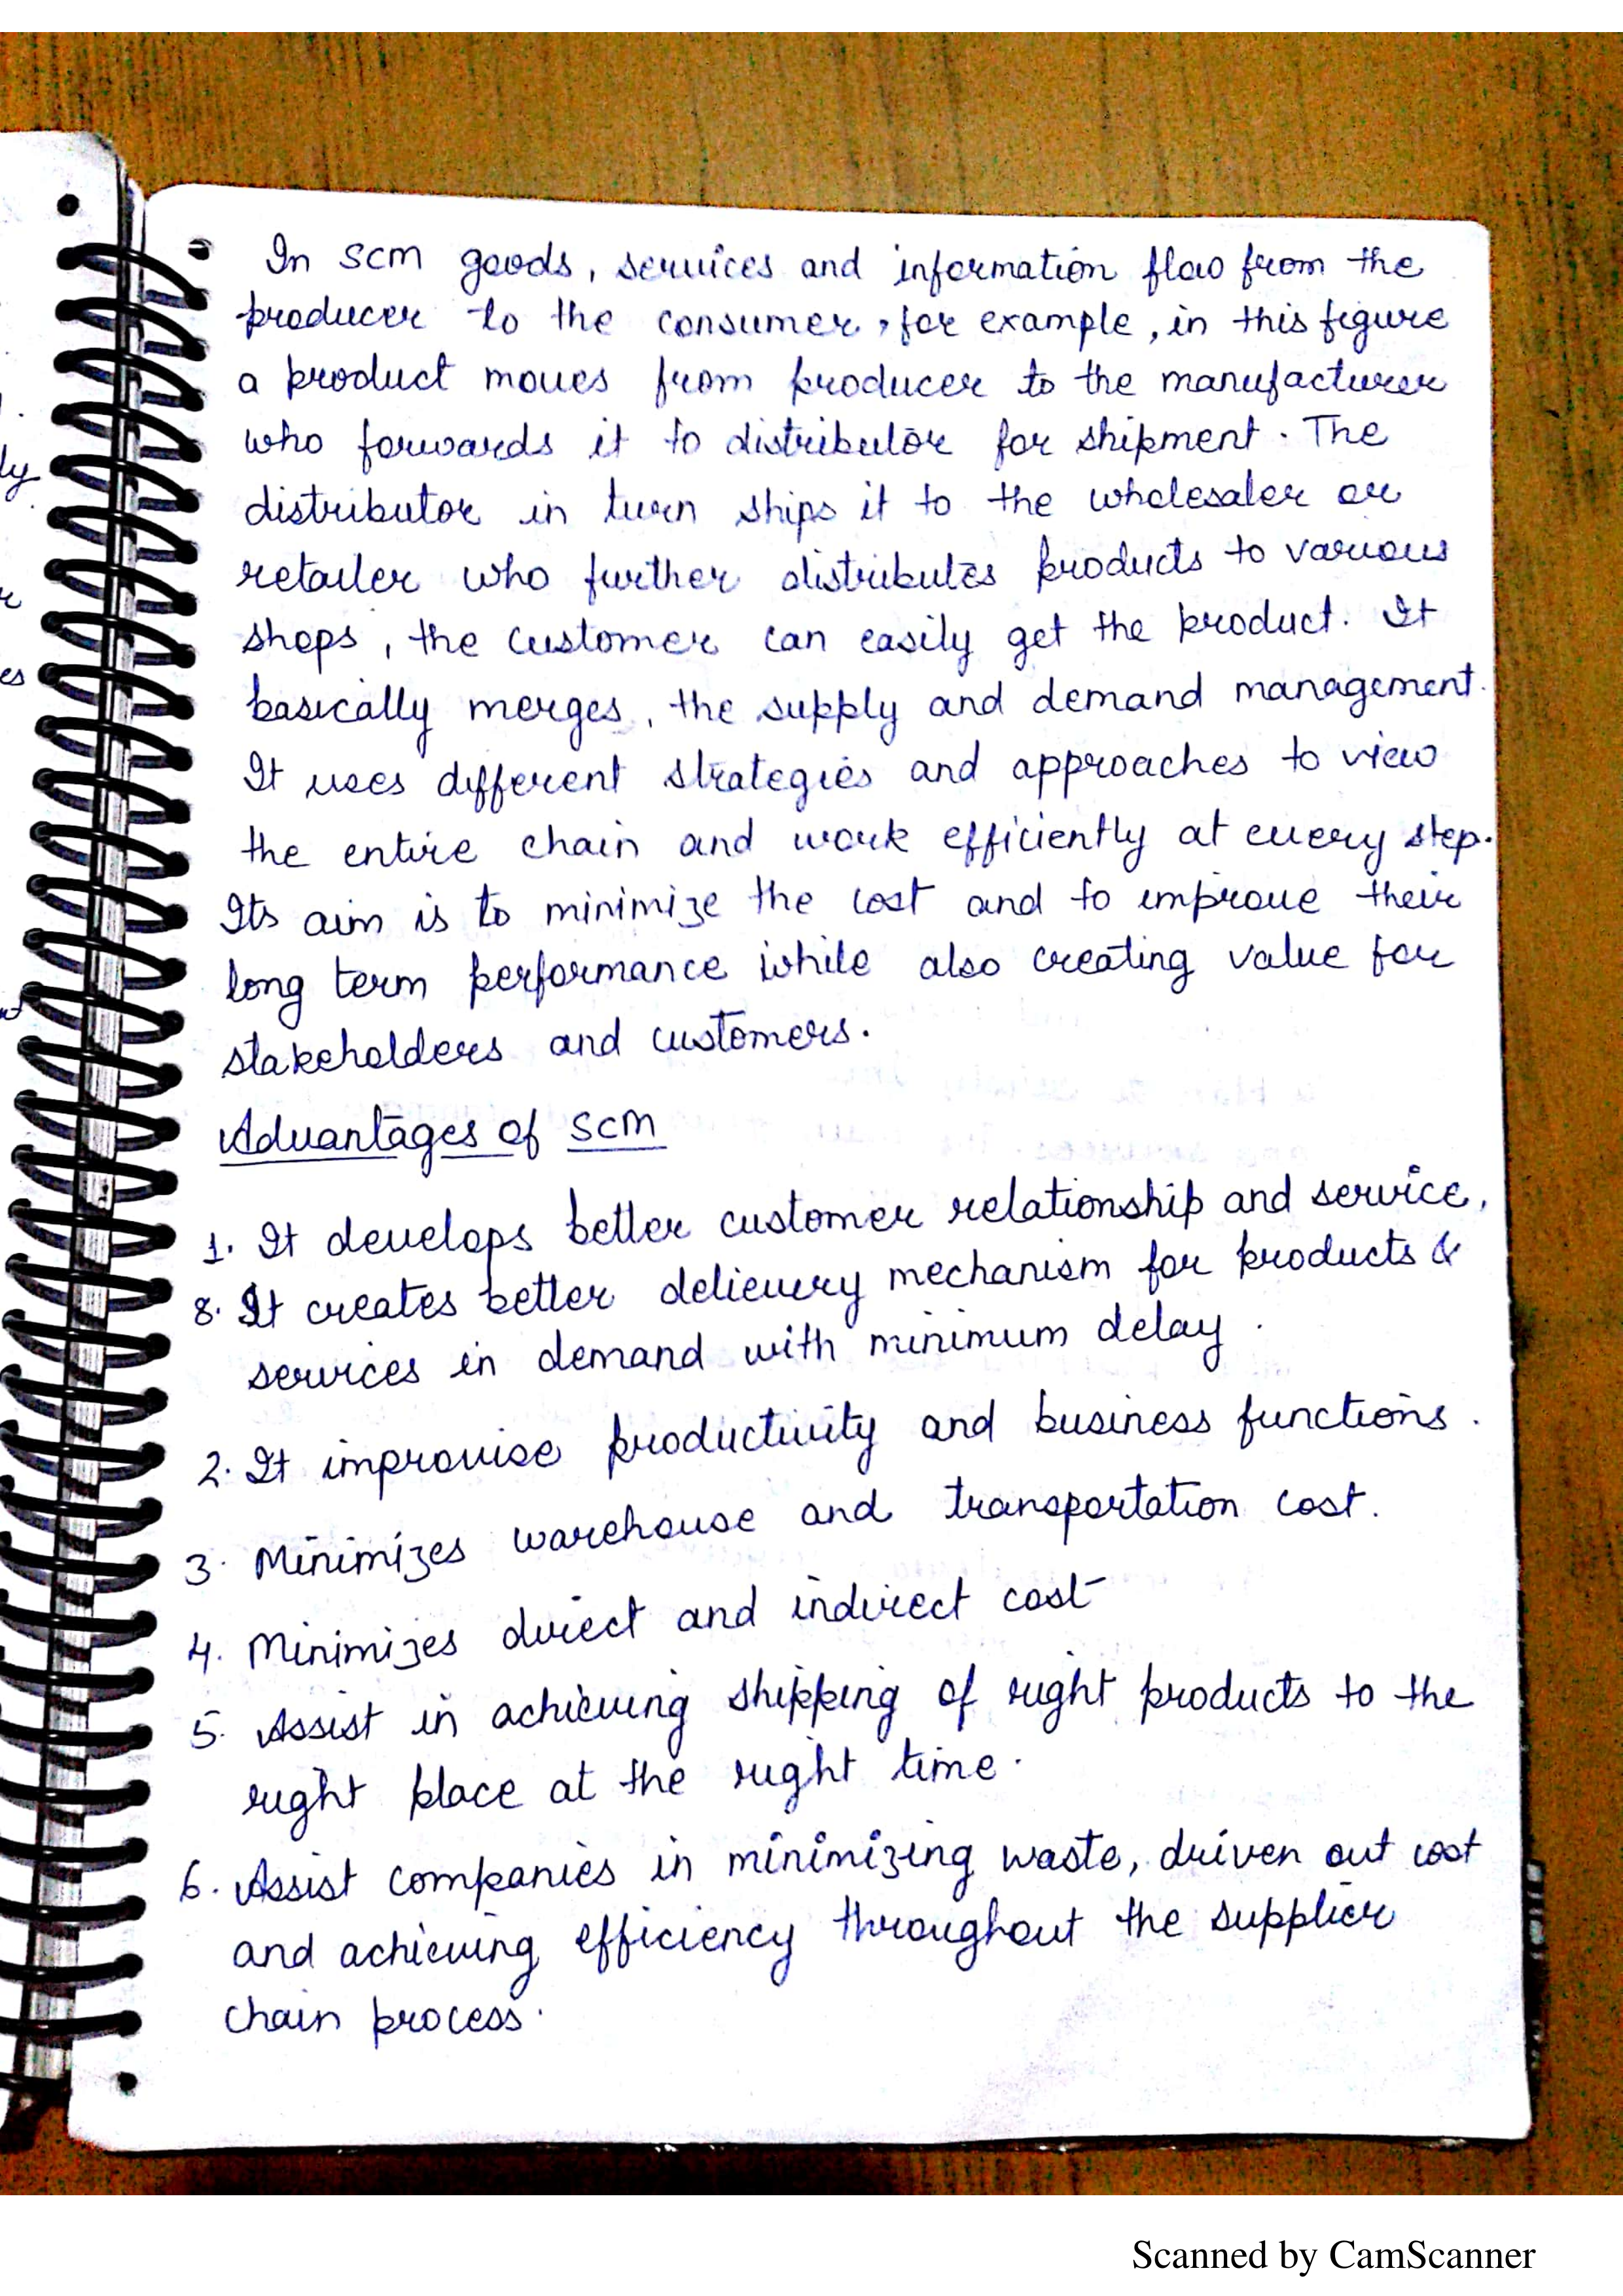 In SCM goods, services and information flow from the
producer to the consumer, for example, in this figure
a product moves from producer to the manufacturer
who forwards it to distributor for shipment. The
distributor in turn ships it to the wholesaler or
retailer who further distributes products to various
shops, the customer can easily get the product. It
basically merges, the supply and demand management.
It uses different strategies and approaches to view
the entire chain and work efficiently at every step.
Its aim is to minimize the cost and to improve their
long term performance while also creating value for
stakeholders and customers.
Advantages of SCM
1. It develops better customer relationship and service,
8. It creates better delievery mechanism for products &
services in demand with minimum delay.
2. It improvise productivity and business functions.
3. Minimizes warehouse and transportation cost.
4. Minimizes direct and indirect cost
5. Assist in achieving shipping of right products to the
right place at the right time.
6. Assist companies in minimizing waste, driven out cost
and achieving efficiency throughout the supplier
chain process.
Scanned by CamScanner